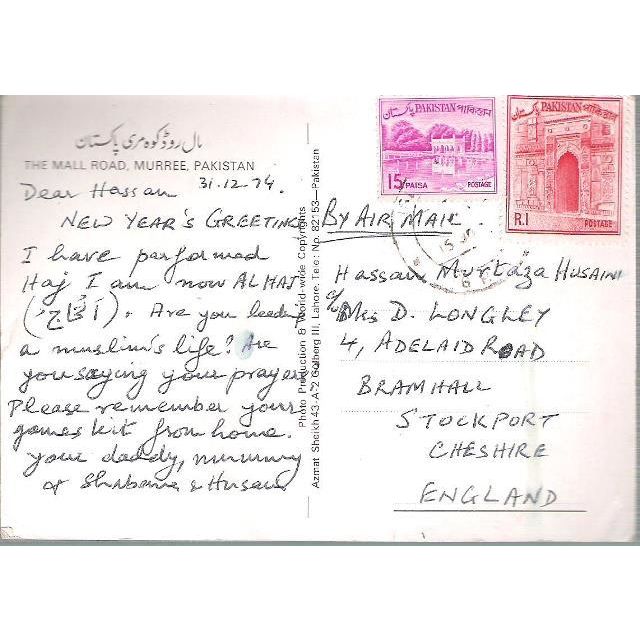 مال روڈ کوہ مری پاکستان
THE MALL ROAD, MURREE, PAKISTAN
Dear Hassan 31.12.74.
NEW YEAR'S GREETING
I have performed
Haj I am now ALHAJ
(الحاج). Are you leading
a muslim's life? Are
you saying your prayers
Please remember your
games kit from home.
your daddy, mummy
Shabana & Husain
Photo Production & World-wide Copyrights
Azmat Sheikh 43-A-2 Gulberg III, Lahore. Tele: No. 82153—Pakistan
پاکستان PAKISTAN পাকিস্তান
15 PAISA POSTAGE
پاکستان PAKISTAN পাকিস্তান
R.1 POSTAGE
BY AIR MAIL.
Hassan Murtaza HUSAINI
c/o Mrs D. LONGLEY
4, ADELAID ROAD
BRAMHALL
STOCKPORT
CHESHIRE
ENGLAND